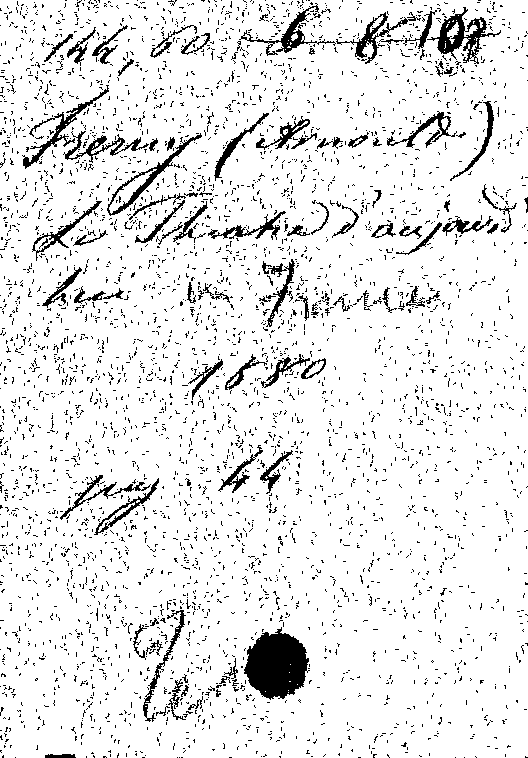 144,60 6. 8 107
Fremy (Arnould)
Le Théatre d'aujourd'
hui en France
1880
pag 44